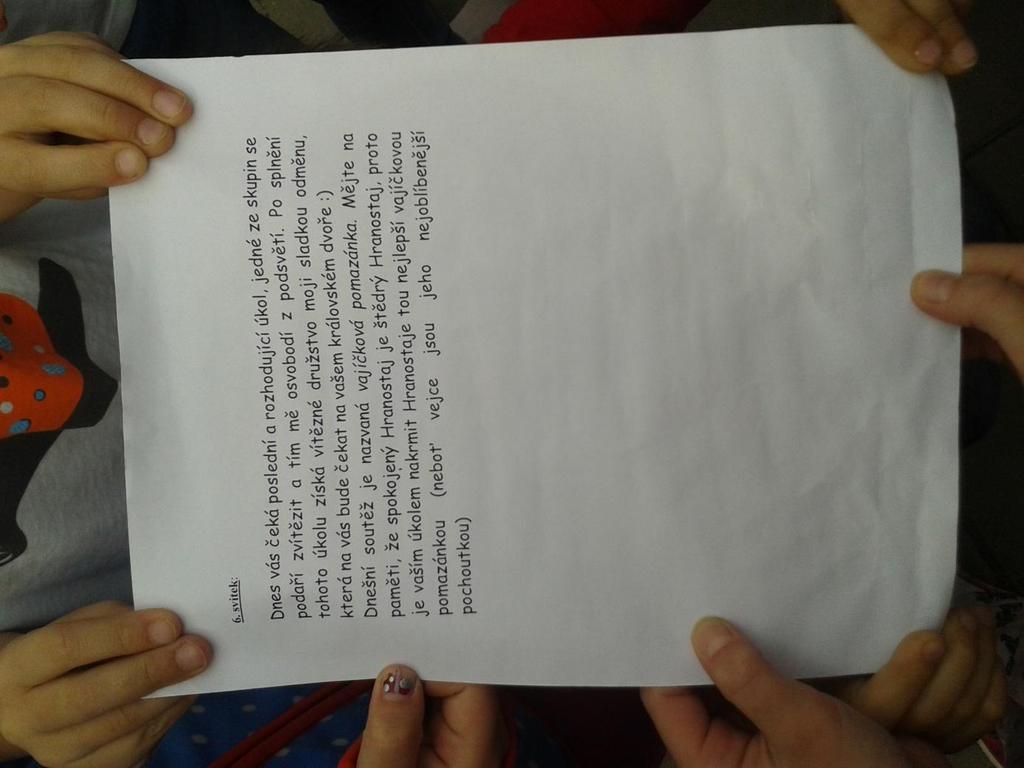 6. svitek:
Dnes vás čeká poslední a rozhodující úkol, jedné ze skupin se
podaří zvítězit a tím mě osvobodí z podsvětí. Po splnění
tohoto úkolu získá vítězné družstvo moji sladkou odměnu,
která na vás bude čekat na vašem královském dvoře :)
Dnešní soutěž je nazvaná vajíčková pomazánka. Mějte na
paměti, že spokojený Hranostaj je štědrý Hranostaj, proto
je vaším úkolem nakrmit Hranostaje tou nejlepší vajíčkovou
pomazánkou (neboť vejce jsou jeho nejoblíbenější
pochoutkou)